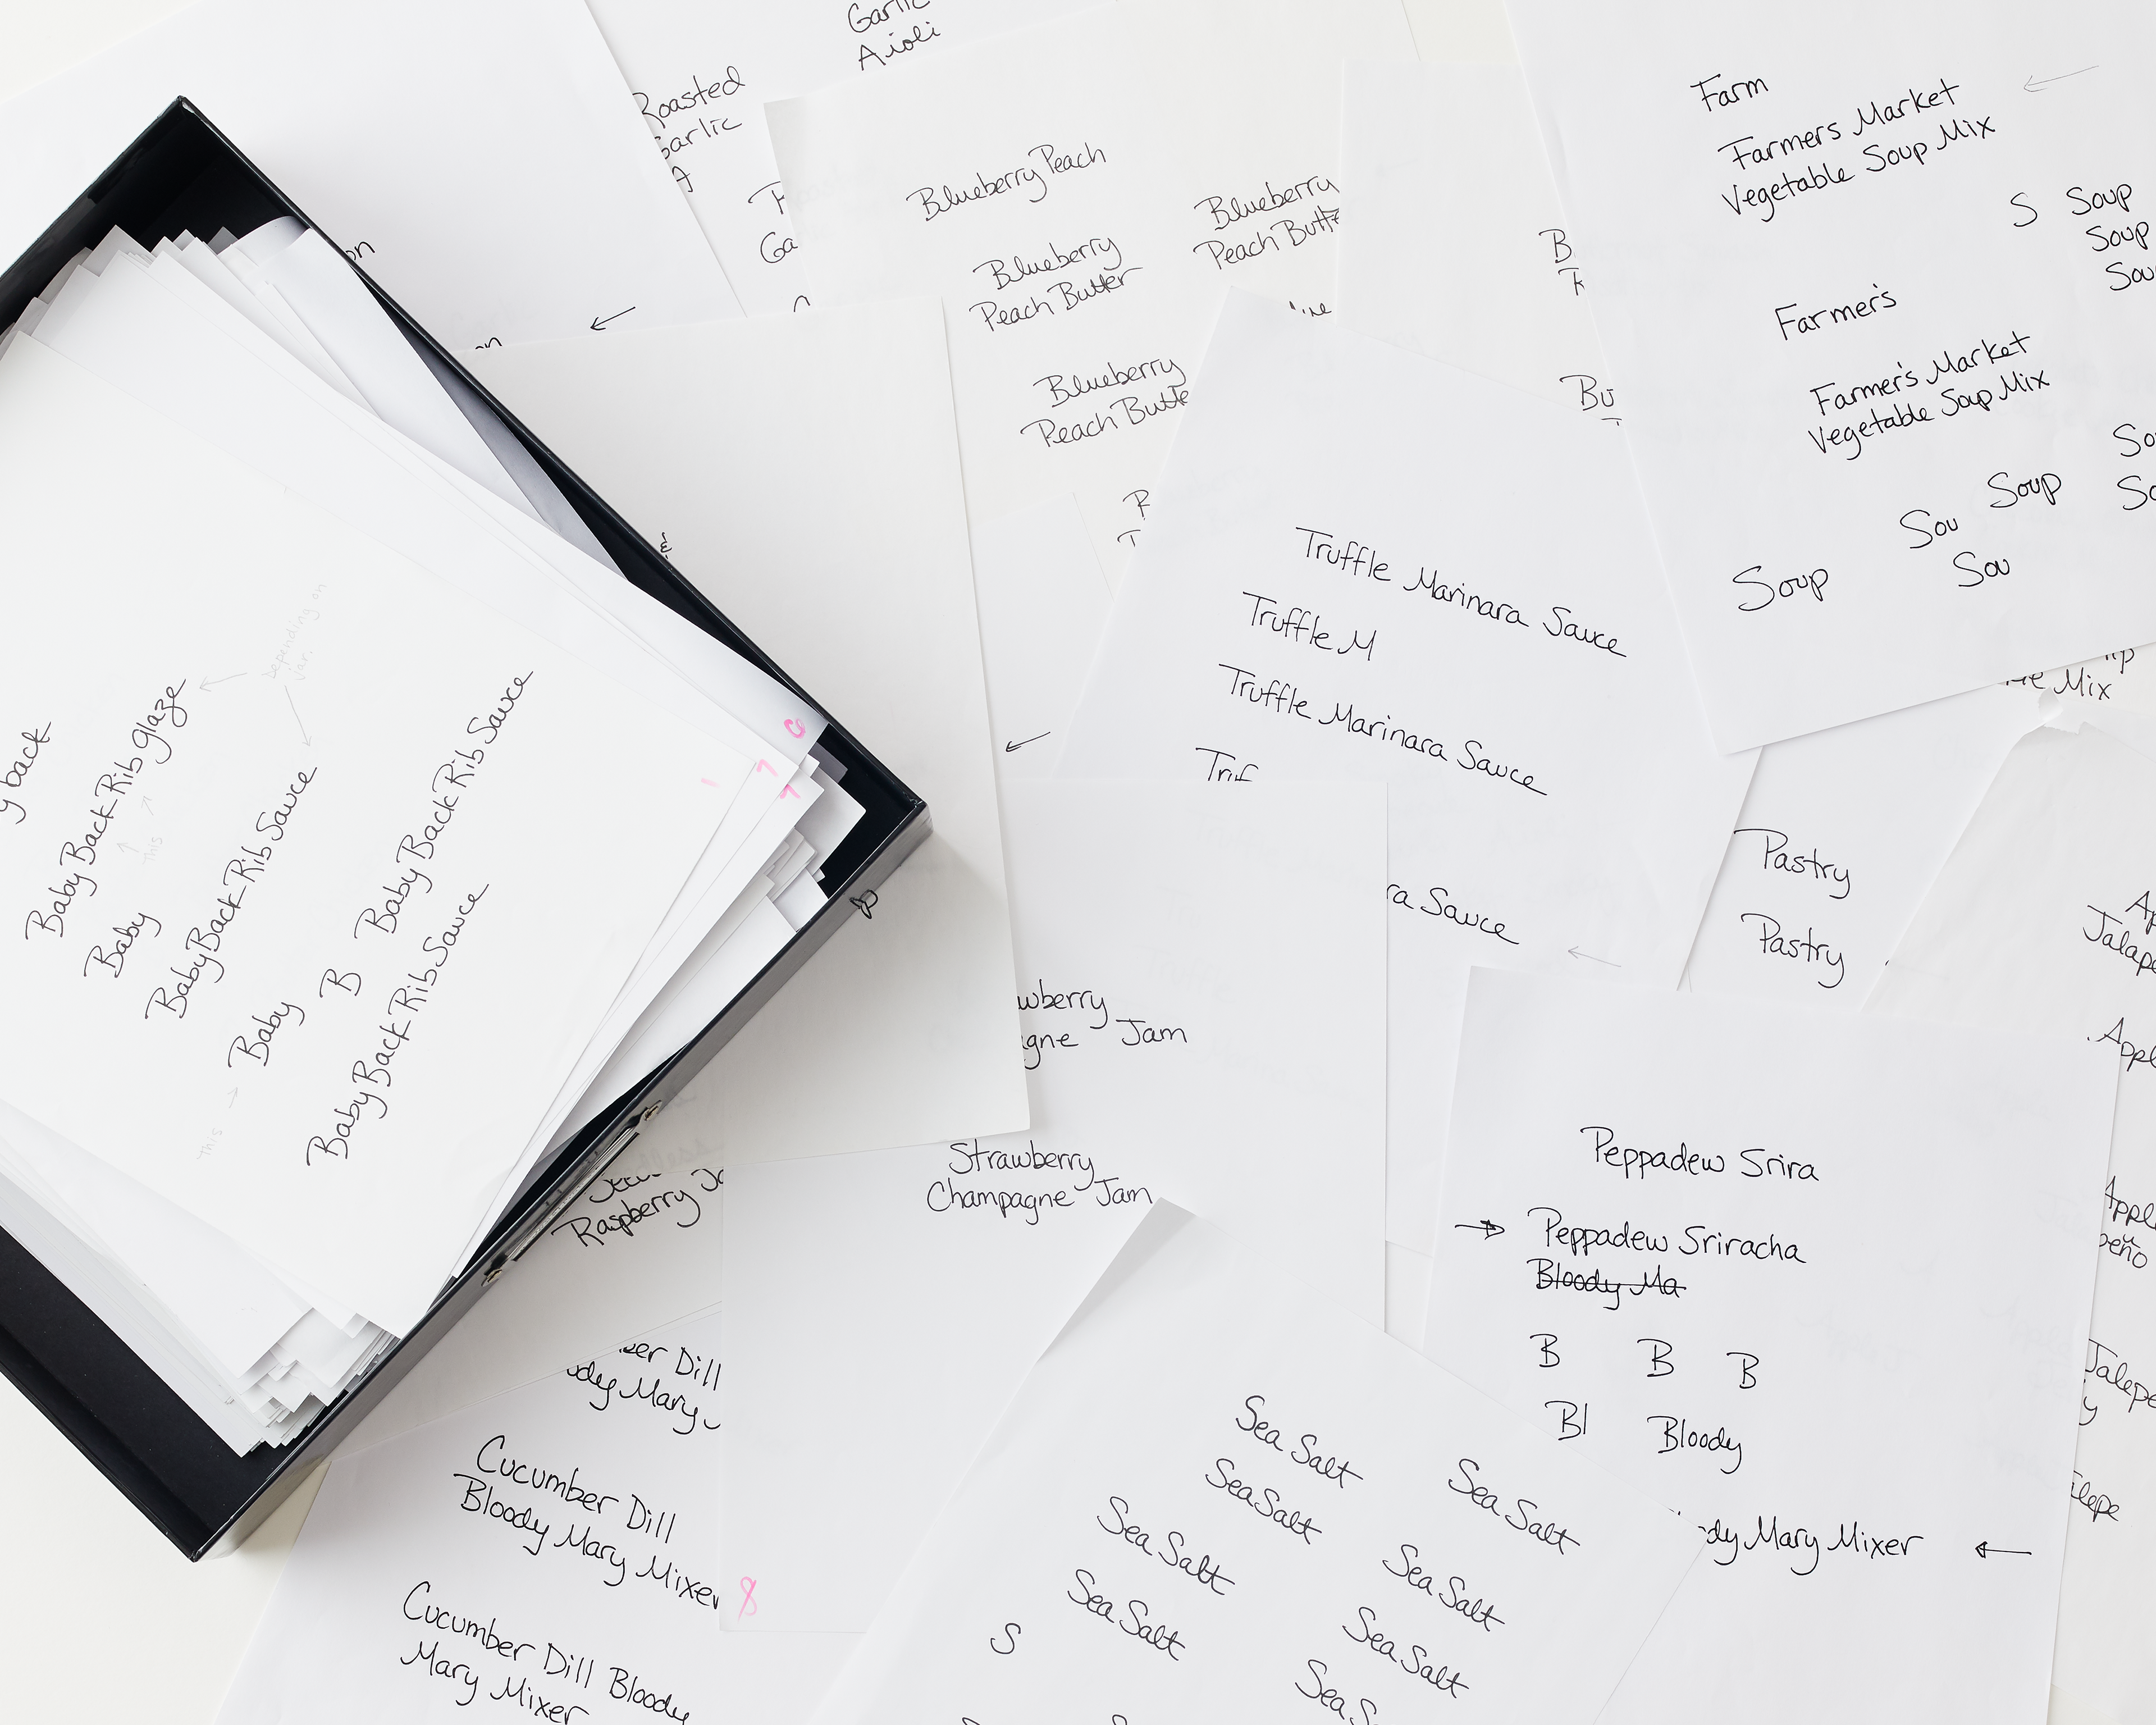 Garlic
Aioli
Roasted
Garlic
A
Blueberry Peach
Blueberry
Peach Butter
Blueberry
Peach Butte
Blueberry
Peach Butte
Farm
Farmers Market
Vegetable Soup Mix
S Soup
Soup
Sou
Farmer's
Farmer's Market
Vegetable Soup Mix
Soup
Sou
Sou
Soup
Mix
B
Bu
on
on
&
Truffle Marinara Sauce
Truffle M
Truffle Marinara Sauce
Truf
ra Sauce
Pastry
Pastry
Ap
Jalape
Apple
Appl
peño
Jalape
y
alape
y back
Baby Back Rib Glaze
Baby
Baby Back Rib Sauce
Baby B Baby Back Rib Sauce
Baby Back Rib Sauce
Depending on
jar.
this
this
1
7
7
wberry
agne Jam
Strawberry
Champagne Jam
Raspberry Ja
ber Dill
ody Mary
Cucumber Dill
Bloody Mary Mixer
Cucumber Dill Bloody
Mary Mixer
8
Peppadew Srira
Peppadew Sriracha
Bloody Ma
B B B
Bl Bloody
dy Mary Mixer
Sea Salt
Sea Salt
Sea Salt
Sea Salt
Sea Salt
Sea Salt
Sea Salt
Sea S
S